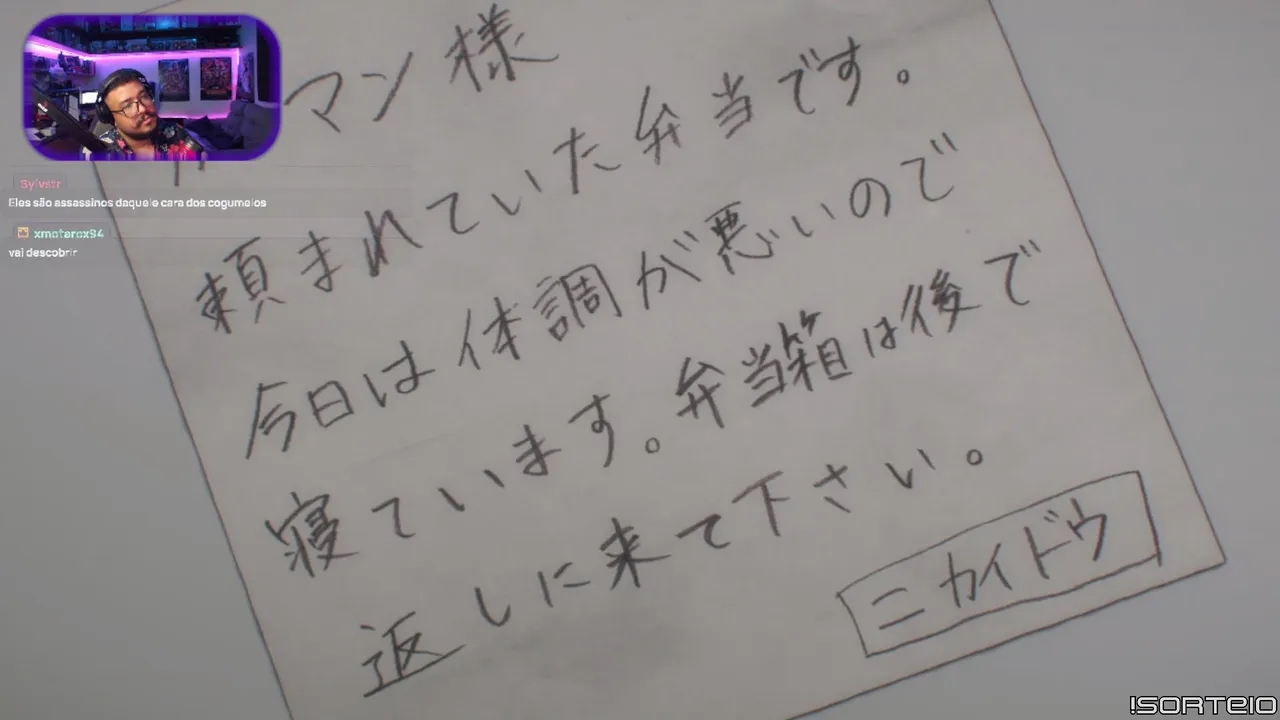 マン様
頼まれていた弁当です。
今日は体調が悪いので
寝ています。弁当箱は後で
返しに来て下さい。
ニカイドウ
Sylvstr
Eles são assassinos daquele cara dos cogumelos
xmoterox94
vai descobrir
!SORTEIO